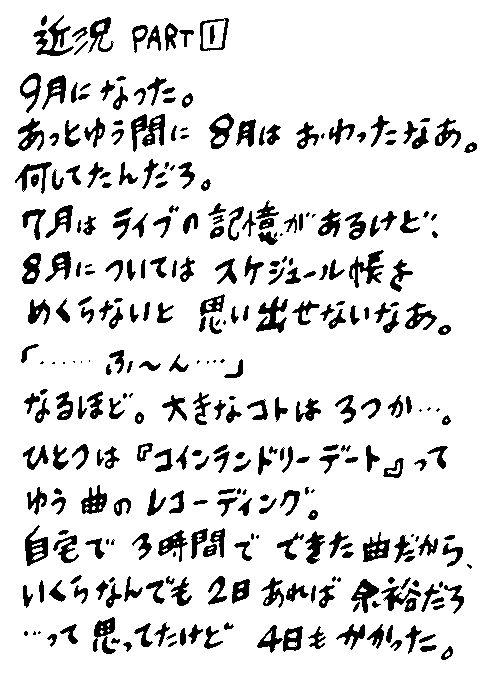 近況 PART 1
9月になった。
あっとゆう間に 8月は おわったなあ。
何してたんだろ。
7月は ライブの 記憶が あるけど、
8月に ついては スケジュール帳を
めくらないと 思い出せないなあ。
「…… ふ〜ん…」
なるほど。大きなコトは 3つか…。
ひとつは『コインランドリーデート』って
ゆう 曲の レコーディング。
自宅で 3時間で できた曲だから、
いくらなんでも 2日あれば 余裕だろ
…って 思ってたけど 4日も かかった。